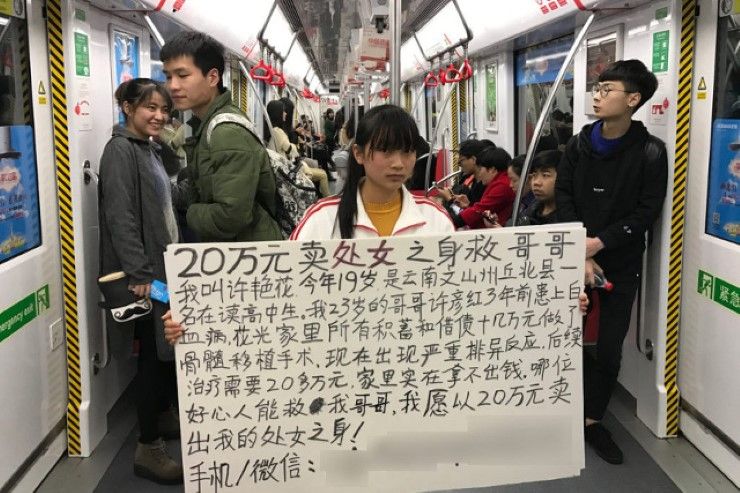 20万元卖处女之身救哥哥
我叫许艳花,今年19岁是云南文山州丘北县一
名在读高中生。我23岁的哥哥许彦红3年前患上白
血病,花光家里所有积蓄和借债十几万元做了
骨髓移植手术、现在出现严重排异反应,后续
治疗需要20多万元,家里实在拿不出钱。哪位
好心人能救我哥哥,我愿以20万元卖
出我的处女之身!
手机/微信:
Emergency exit
紧急